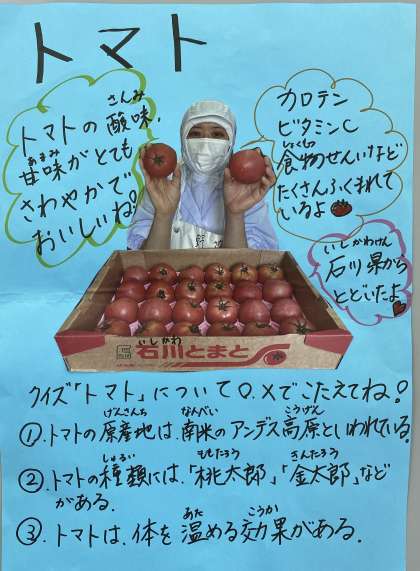 トマト
トマトの酸味、
さんみ
甘味がとても
あまみ
さわやかで
おいしいね!
カロテン
ビタミンC
食物せんいなど
しょくもつ
たくさんふくまれて
いるよ
いしかわけん
石川県から
とどいたよ
いしかわ
石川とまと
クイズ「トマト」について○、×でこたえてね!
げんさんち なんべい こうげん
①トマトの原産地は、南米のアンデス高原といわれている。
しゅるい ももたろう きんたろう
②トマトの種類には、「桃太郎」、「金太郎」など
がある。
あた こうか
③トマトは、体を温める効果がある。